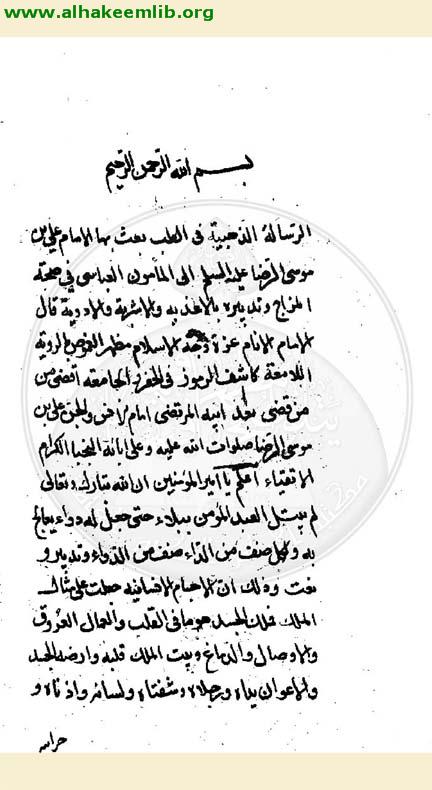 www.alhakeemlib.org
بسم الله الرحمن الرحيم
الرسالة الذهبية فى الطب بعث بها الامام على بن
موسى الرضا عليه السلم الى المامون العباسى فى صحة
المزاج وتدبيره بالاغذيه والاشربة والادوية قال
الامام الانام غرة وجه الاسلام مظهر الغموض بالروية
اللامعة كاشف الرموز فى الجفر والجامعه اقضى من
من قضى بعد ابيه المرتضى امام الانس والجن على بن
موسى الرضا صلوات الله عليه وعلى ابائه النجبا الكرام
الاتقياء اعلم يا امير المؤمنين ان الله تبارك وتعالى
لم يبتل العبد المؤمن ببلاء حتى جعل له دواء يعالج
به ولكل صنف من الداء صنف من الدواء وتدبير و
نعت وذلك ان الاجسام الانسانيه جعلت على مثال
الملك فملك الجسد هو ما فى القلب والعمال العروق
والاوصال والدماغ وبيت الملك قلبه وارضه الجسد
والاعوان يداه ورجلاه وشفتاه ولسانه واذناه و